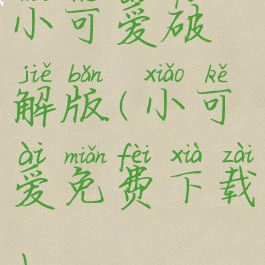 小可爱破
jiě bǎn xiǎo kě
解版(小可
ài miǎn fèi xià zài
爱免费下载
)